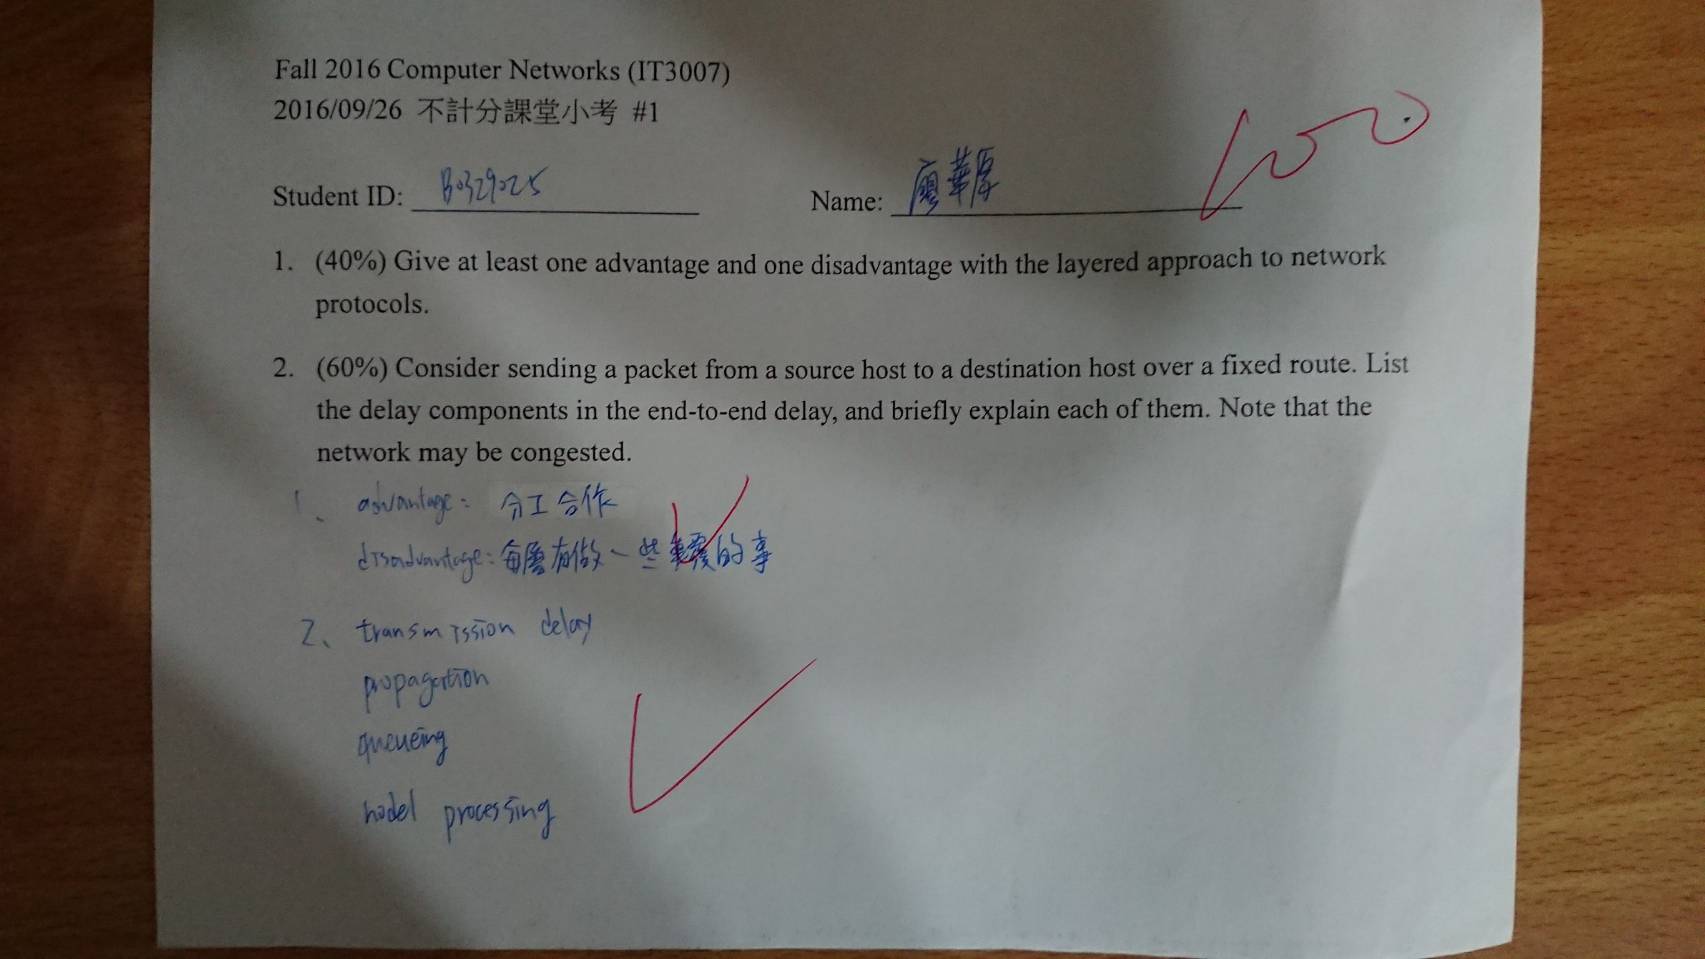 Fall 2016 Computer Networks (IT3007)
2016/09/26 不計分課堂小考 #1
Student ID: B0329025 Name: 廖華厚
1. (40%) Give at least one advantage and one disadvantage with the layered approach to network
protocols.
2. (60%) Consider sending a packet from a source host to a destination host over a fixed route. List
the delay components in the end-to-end delay, and briefly explain each of them. Note that the
network may be congested.
1、 advantage: 分工合作
disadvantage: 每層有做一些重覆的事
2、 transmission delay
propagation
queueing
nodel processing